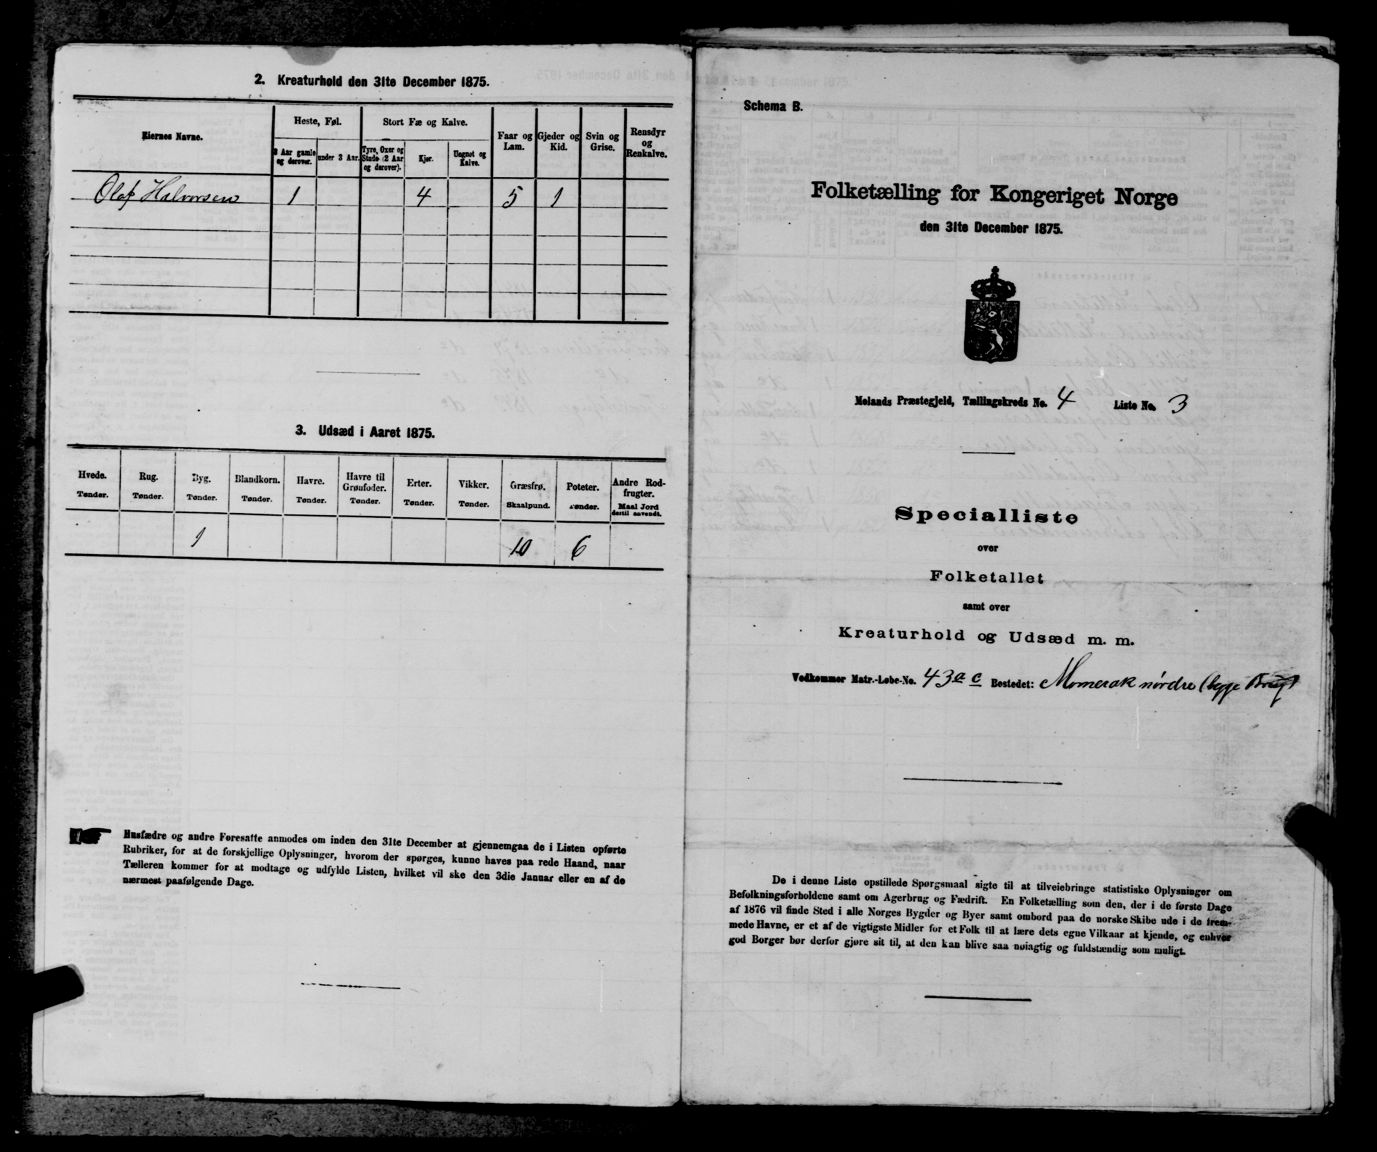 2. Kreaturhold den 31te December 1875.
Eiernes Navne.
Heste, Føl.
Stort Fæ og Kalve.
Faar og Lam.
Gjeder og Kid.
Svin og Grise.
Rensdyr og Renkalve.
3 Aar gamle og derover.
under 3 Aar.
Tyre, Oxer og Stude (2 Aar og derover).
Kjør.
Ungnøt og Kalve.
Olaf Halvorsen 1 4 5 1
3. Udsæd i Aaret 1875.
Hvede. Rug. Byg. Blandkorn. Havre. Havre til Grønfoder. Erter. Vikker. Græsfrø. Poteter. Andre Rodfrugter.
Tønder. Tønder. Tønder. Tønder. Tønder. Tønder. Tønder. Tønder. Skaalpund. Tønder. Maal Jord dertil anvendt.
1 10 6
Husfædre og andre Foresatte anmodes om inden den 31te December at gjennemgaa de i Listen opførte
Rubriker, for at de forskjellige Oplysninger, hvorom der spørges, kunne haves paa rede Haand, naar
Tælleren kommer for at modtage og udfylde Listen, hvilket vil ske den 3die Januar eller en af de
nærmest paafølgende Dage.
Schema B.
Folketælling for Kongeriget Norge
den 31te December 1875.
Molands Præstegjeld, Tællingskreds No. 4 Liste No. 3
Specialliste
over
Folketallet
samt over
Kreaturhold og Udsæd m. m.
Vedkommer Matr.-Løbe-No. 43 a c Bostedet: Momerak nórdre (begge Brug)
De i denne Liste opstillede Spørgsmaal sigte til at tilveiebringe statistiske Oplysninger om
Befolkningsforholdene samt om Agerbrug og Fædrift. En Folketælling som den, der i de første Dage
af 1876 vil finde Sted i alle Norges Bygder og Byer samt ombord paa de norske Skibe ude i de frem-
mede Havne, er et af de vigtigste Midler for et Folk til at lære dets egne Vilkaar at kjende, og enhver
god Borger bør derfor gjøre sit til, at den kan blive saa nøiagtig og fuldstændig som muligt.